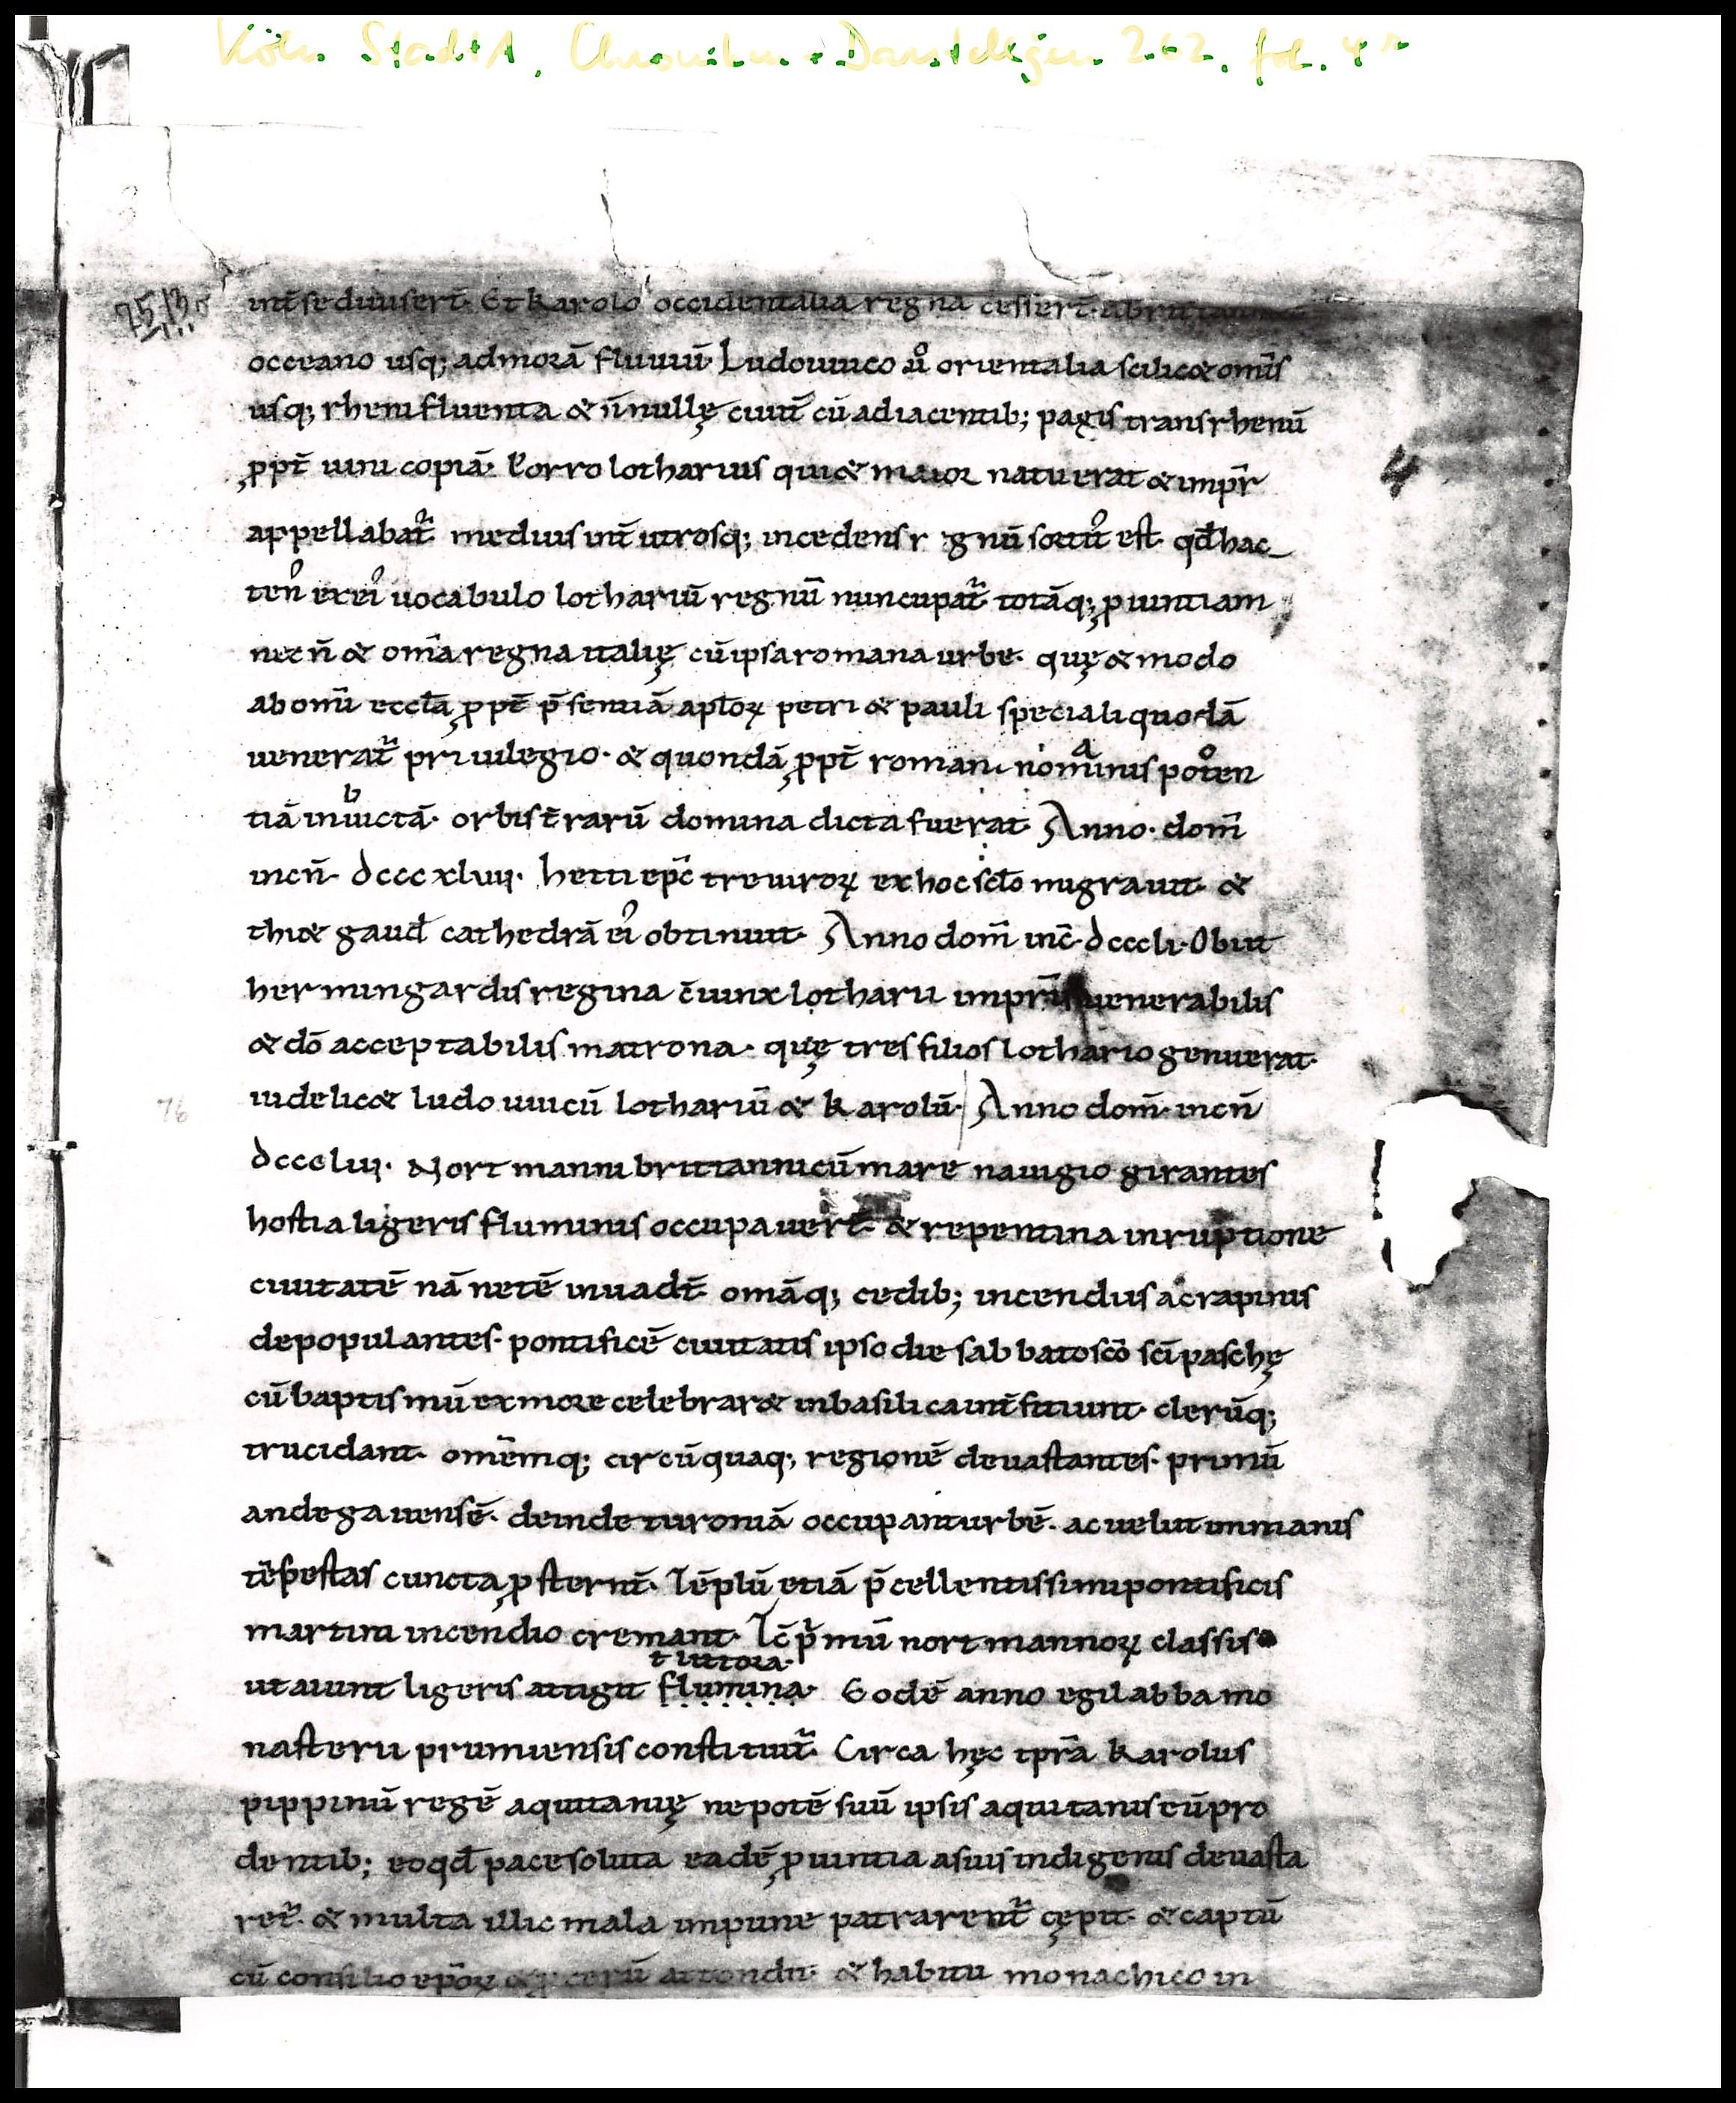 Köln StadtA, Chroniken u. Darstellungen 262, fol. 4r
75,13
int̄ se diuiser̄t. Et karolo occidentalia regna cesser̄t. a brittannico
occeano usq; ad morā fluuiū. Ludouuico u͛o orientalia scilic& om̄is
usq; rheni fluenta & n̄nullę ciuit̄ cū adiacentib; pagis trans rhenū
ꝓpt̄ uini copiā. Porro lotharius qui & maior natu erat & imp̄r
appellabat᷑ medius int̄ utrosq; incedens r gnū sortit᷒ est. qđ hac
ten᷒ ex ei᷒ uocabulo lothariū regnū nuncupat᷑ totāq; ꝓuintiam
nec n̄ & om̄ia regna italię cū ipsa romana urbe. quę & modo
ab omni ecc̄la ꝓpt̄ p̄sentiā apl̄oꝝ petri & pauli speciali quodā
uenerat᷑ priuilegio. & quondā ꝓpt̄ romani nominis poten
a
o
b
tiā inuictā. orbis t̄rarū domina dicta fuerat. Anno. dom̄
incn̄. dcccxluii. hetti ep̄c treuiroꝝ ex hoc sc̄lo migrauit. &
thi&gaud̄ cathedrā ei᷒ obtinuit. Anno dom̄ inc̄. dcccli. Obiit
hermingardis regina c̄iunx lotharii imp̄ris uenerabilis
& dō acceptabilis matrona. quę tres filios lothario genuerat.
76
uidelic& ludouuicū lothariū & karolū. Anno dom̄. incn̄
dccclııı. Nortmanni brittannicū mare nauigio girantes
hostia ligeris fluminis occupauer̄t. & repentina inruptione
ciuitatē nānetē inuadt̄. omāq; cedib; incendiis ac rapinis
depopulantes. pontificē ciuitatis ipso die sabbato sc̄o sc̄i paschę
cū baptismū ex more celebrar& in basilica int̄fitiunt. clerūq;
trucidant. om̄emq; circūquaq; regionē deuastantes. primū
andegauensē. deinde turoniā occupant urbē. ac uelut inmanis
tēpestas cuncta ꝓsternt̄. Tēplū etiā p̄cellentissimi pontificis
martini incendio cremant. Tc̄ p̄mū nortmannoꝝ classis
ł littora.
ut aiunt ligeris attigit flumina. Eodē anno egil abba mo
nasterii prumiensis constituit᷑. Circa hęc tp̄ra karolus
pippinū regē aquitanię nepotē suū ipsis aquitanis eū pro
dentib; eo qđ pace soluta eadē ꝓuintia a suis indigenis deuasta
ret᷑. & multa illic mala impune patrarent᷑ cępit. & captū
cū consilio ep̄oꝝ & ꝓcerū attondit. & habitu monachico in